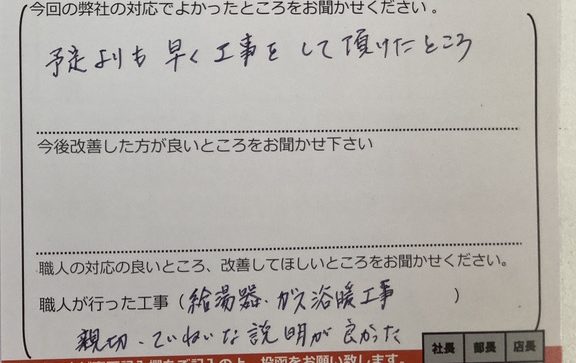 今回の弊社の対応でよかったところをお聞かせください。
予定よりも 早く 工事を して 頂けたところ
今後改善した方が良いところをお聞かせ下さい
職人の対応の良いところ、改善してほしいところをお聞かせください。
職人が行った工事（給湯器、ガス浴暖工事　）
親切、ていねいな説明が良かった
社長 部長 店長
記入欄をご記入の上、投函をお願い致します。